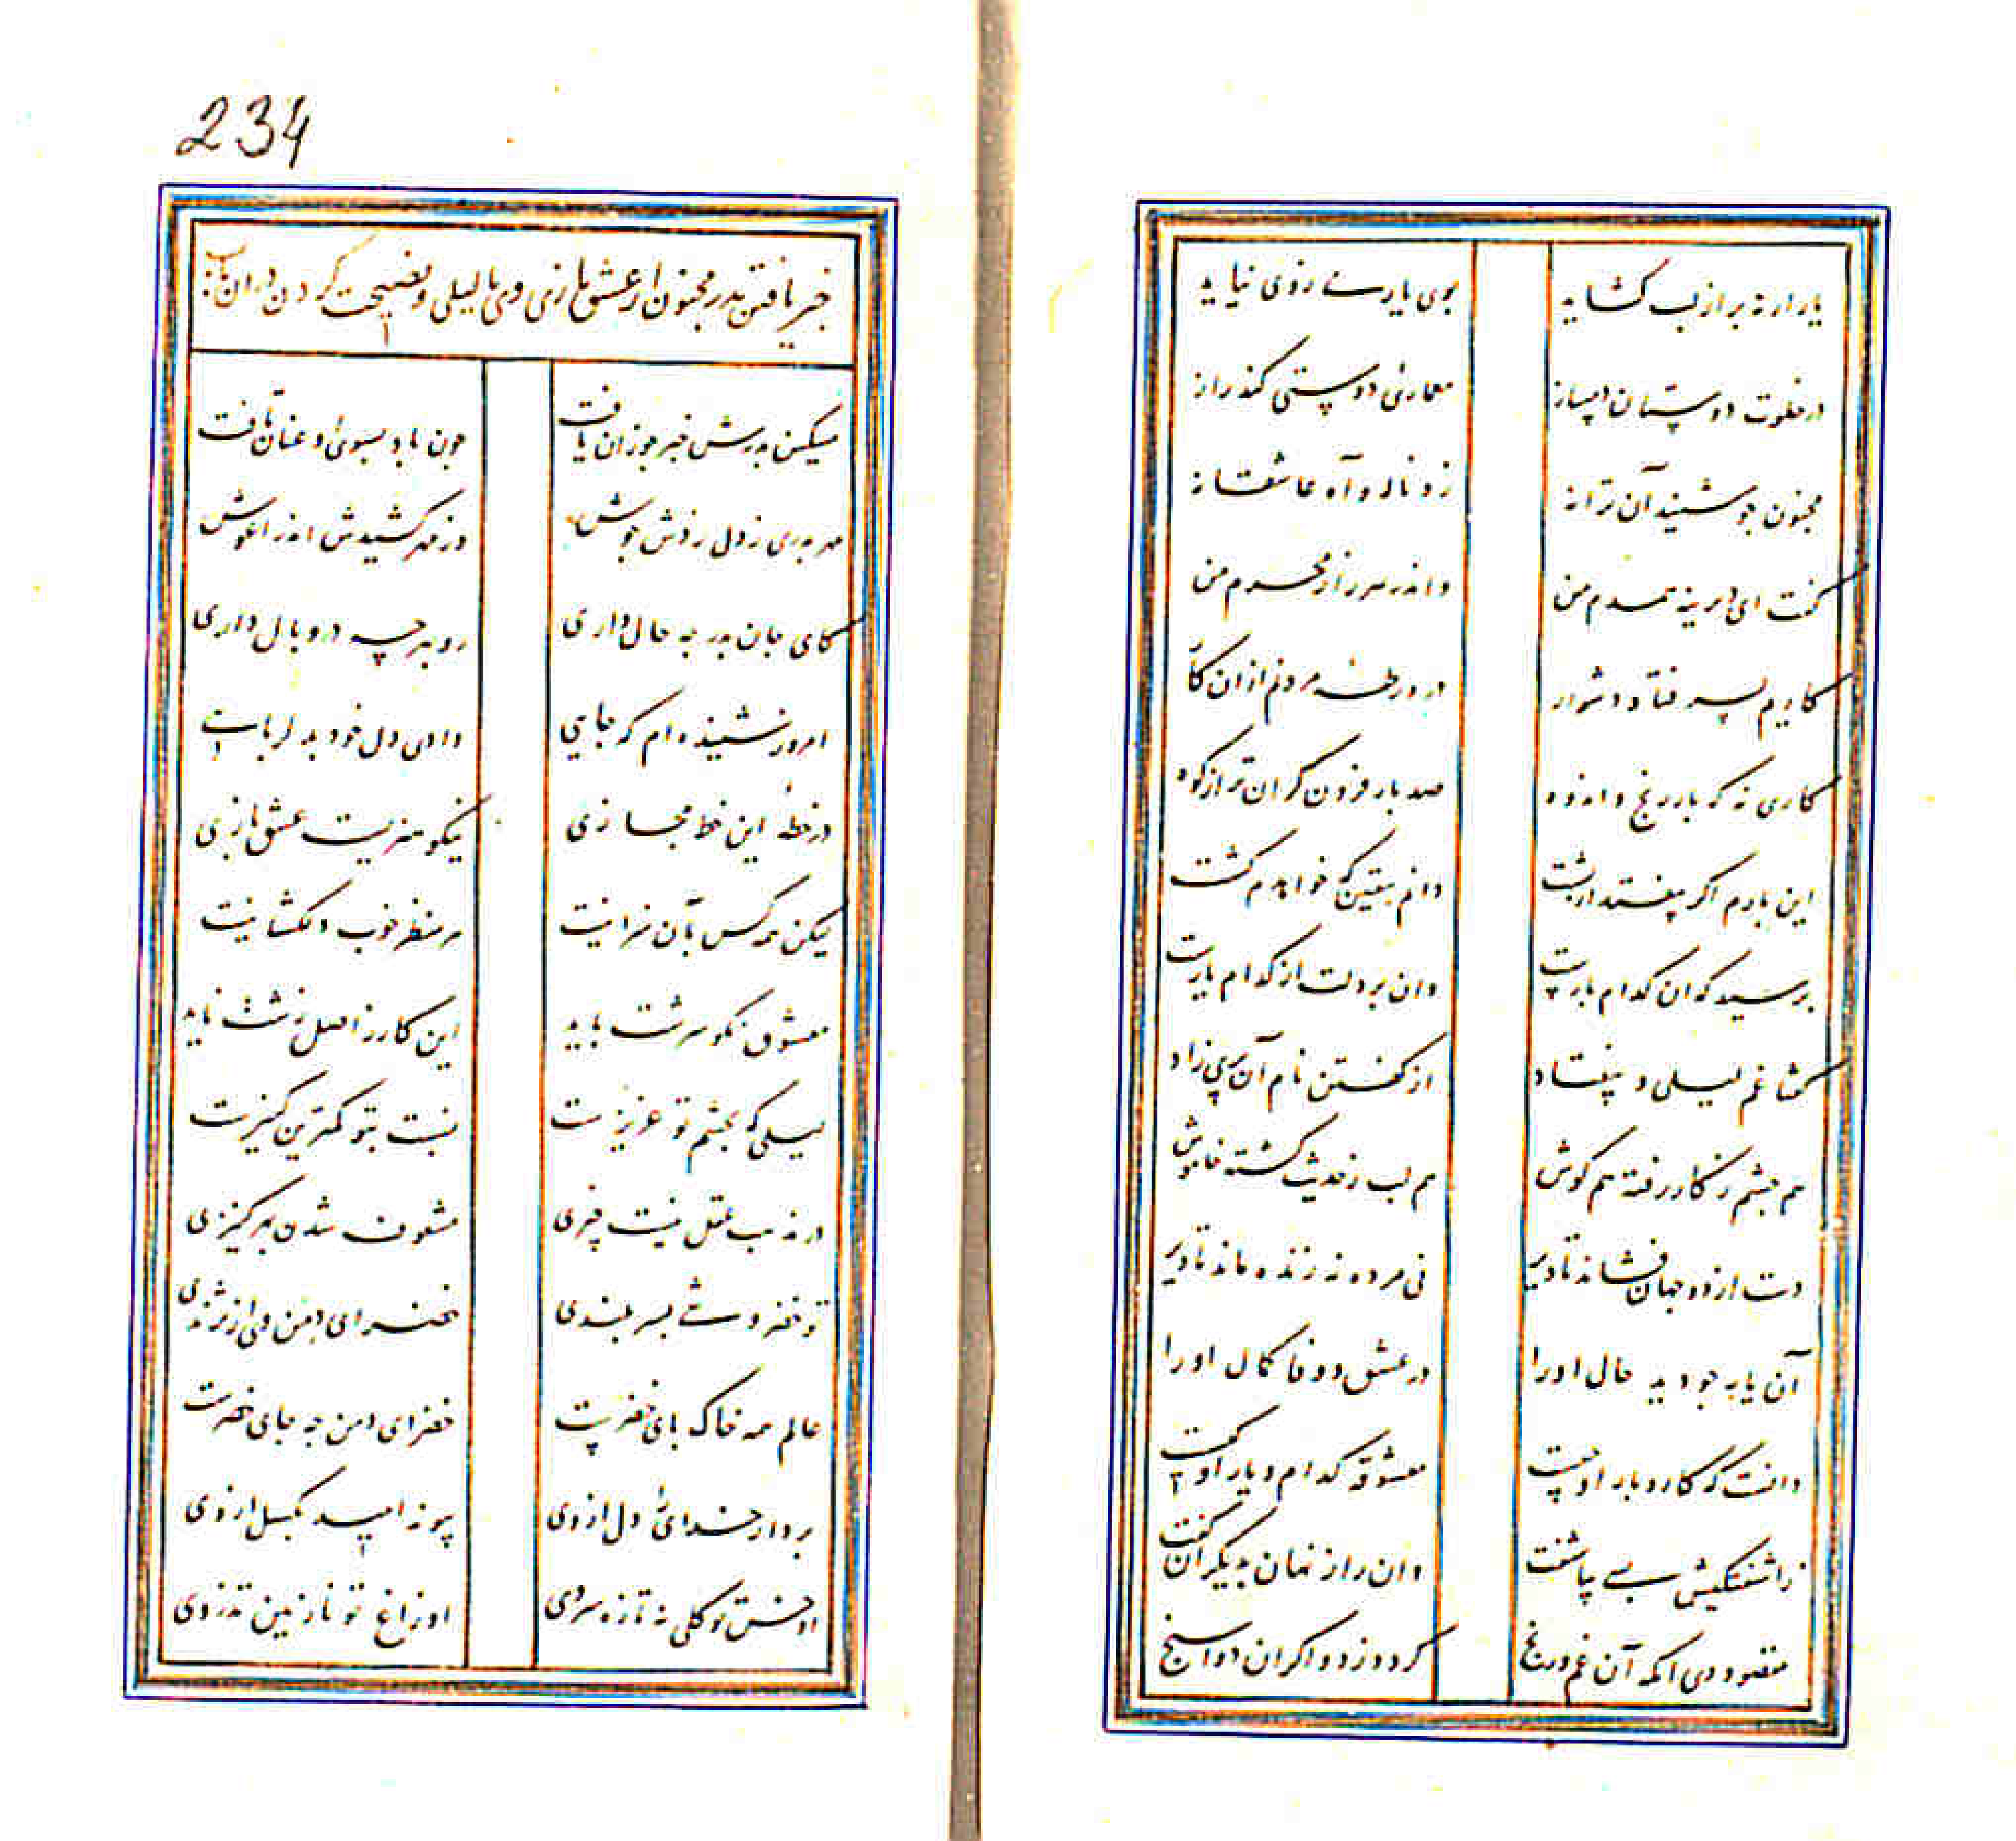 یار ار نه براز لب کشاید بوی یاری ز وی نیاید
در خلوت دوستان دمساز معماری دوستی کند راز
مجنون جو شنید آن ترانه زد ناله و آه عاشقانه
گفت ای دیرینه همدم من و اندر هر راز محرم من
کاریم بسر فتاده دشوار در ورطه مردنم ازان کار
کاری نه که بار رنج و اندوه صد بار فزون کران تر از کوه
این بارم اکر بیفتد از پشت دانم بیقین که خواهدم کشت
برسید که ان کدام بارست وان بر دلت از کدام یارست
گفتا غم لیلی و بیفتاد از گفتن نام آن پری زاد
هم جشم ز کار رفته هم کوش هم لب ز حدیث کشته خاموش
دست از دو جهان فشاند تا دیر نی مرده نه زنده ماند تا دیر
آن یار جو دید حال او را در عشق و وفا کمال او را
دانست که کار و بار او چیست معشوقه کدام و یار او کیست
زاشفتکیش بسی بیاشفت وان راز نهان بدیکران گفت
مقصود وی آنکه آن غم و رنج کردد ز دواکران دواسنج
234
خبر یافتن پدر مجنون از عشق بازی وی با لیلی و نصیحت کردن در ان باب
مسکین پدرش خبر جو زان یافت جون باد بسوی او عنان تافت
مهر پدری ز دل زدش جوش در مهر کشیدش اندر اغوش
کای جان پدر جه حال داری رو بهر چه در وبال داری
امروز شنیده‌ام که جایی دادی دل خود بدلربایی
در خطه این خط مجازی نیکو هنریست عشق بازی
لیکن همه کس بآن سزا نیست هر منظر خوب دلکشا نیست
معشوق نکو سرشت باید این کار ز اصل زشت ناید
لیلی که بچشم تو عزیزست نسبت بتو کمترین کنیزست
در مذهب عقل نیست چیزی مشعوف شدن بهر کنیزی
تو خضر وشی بسر بلندی خضرای دمن وی از نژندی
عالم همه خاک پای خضرست خضرای دمن جه جای خضرست
بردار خدای را دل از وی پیوند امید بکسل از وی
او خس تو کلی نه تازه سروی او زاغ تو نازنین تذروی